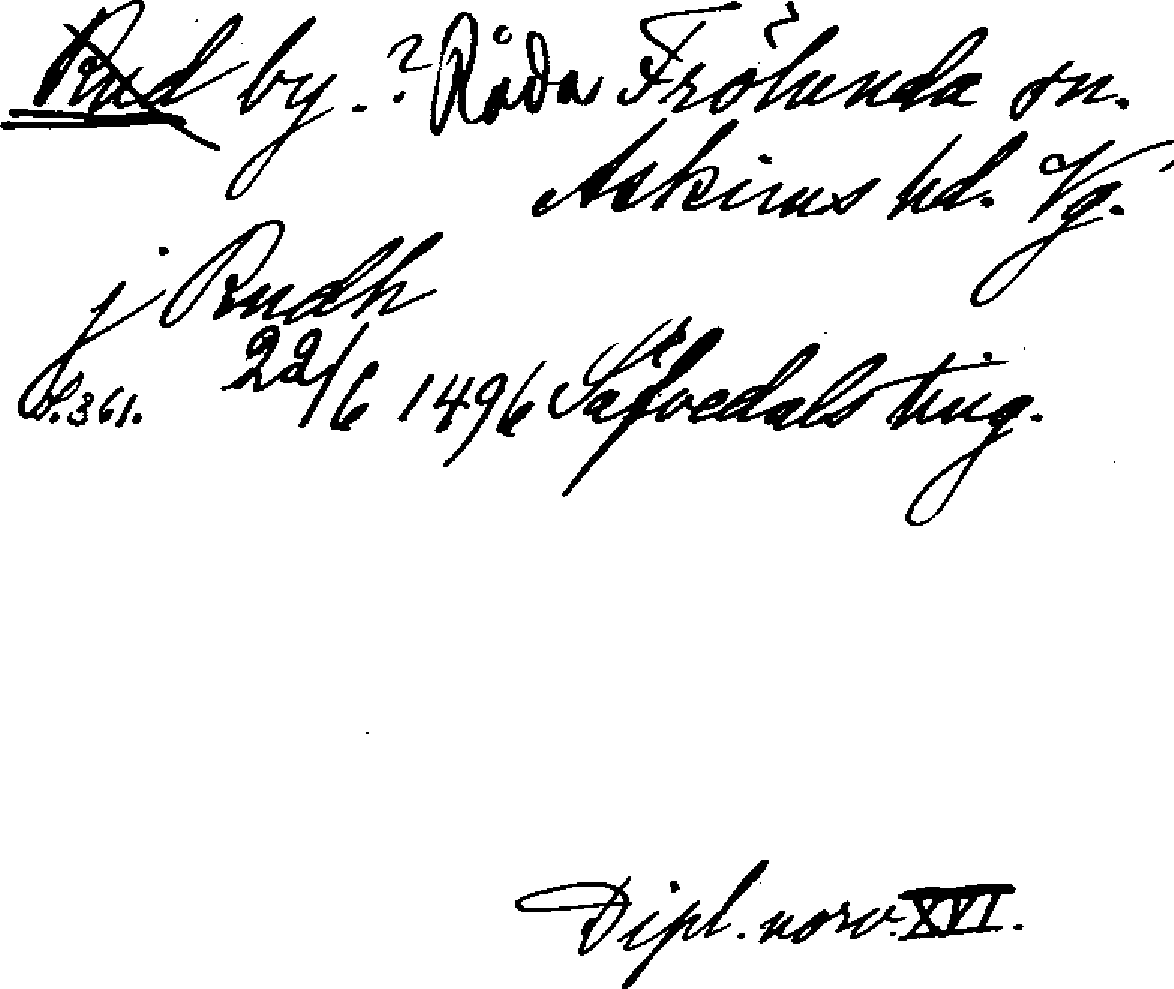 Rud by. ? Råda Frölunda sn.
Askims hd. Vg.
j Rudh
S. 361. 22/6 1496 Säfvedals ting.
Dipl. norv. XVI.